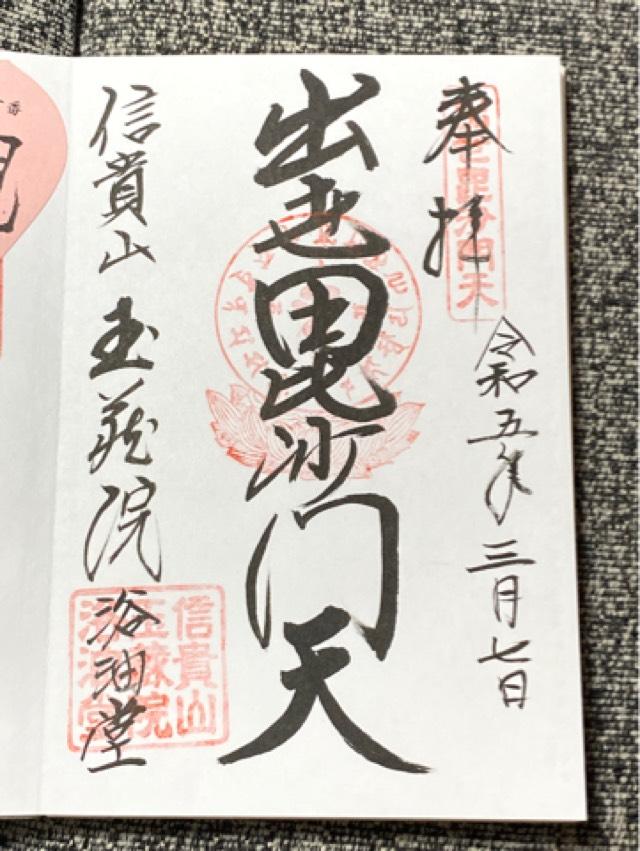 奉拝
令和五年三月七日
出世毘沙門天
信貴山玉蔵院浴油堂
信貴山
玉蔵院
浴油堂